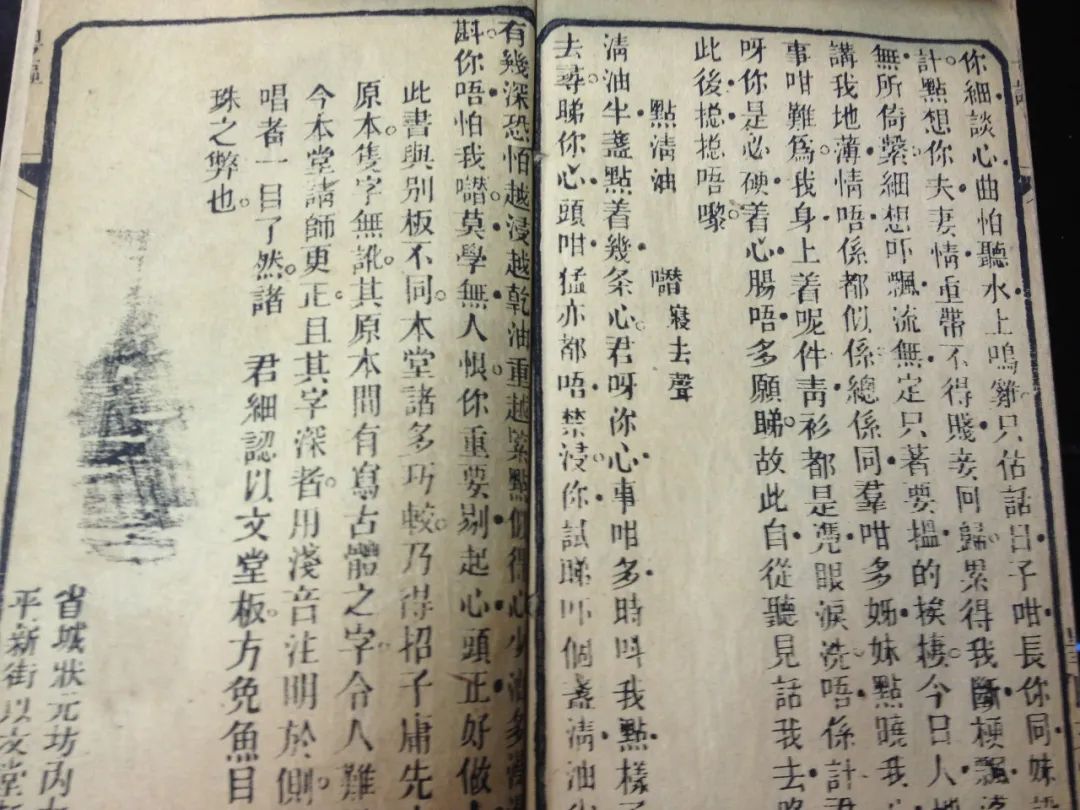 你細談心曲怕聽水上鳴雞只估話日子咁長你同妹
計點想你夫妻情重帶不得賤妾回歸累得我斷梗飄
無所倚藂細想吓飄流無定只著要搵的挨棲今日人地
講我地薄情唔係都似係總係同羣咁多姊妹點曉我
事咁難為我身上着呢件靑衫都是凴眼淚洗唔係計
呀你是必硬着心腸唔多願睇故此自從聽見話我去
此後搃搃唔嚟
點淸油 嚌寢去聲
淸油半盞點着幾条心君呀你心事咁多時呌我點樣
去尋睇你心頭咁猛亦都唔禁浸你試睇吓個盞淸油
有幾深恐怕越浸越乾油重越緊點似得心少油多
斟你唔怕我嚌莫學無人恨你重要剔起心頭正好做
此書與別板不同本堂諸多巧較乃得招子庸先
原本隻字無訛其原本間有寫古體之字令人難
今本堂請師更正且其字深者用淺音注明於側
唱者一目了然諸 君細認以文堂板方免魚目
珠之弊也
省城狀元坊內
平新街以文堂